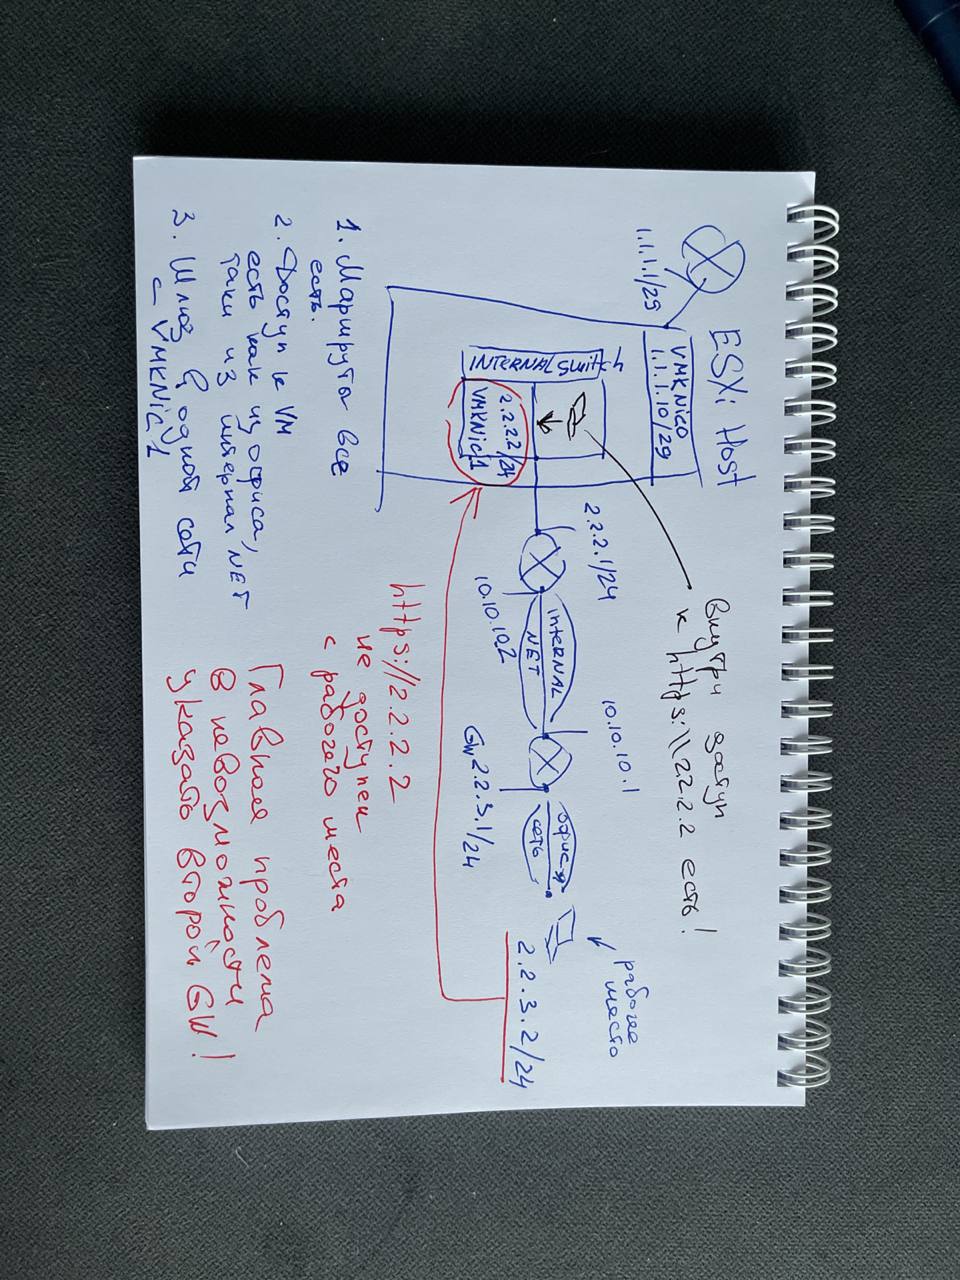 ESXi Host
1.1.1.1/29
VMKNic0
1.1.1.10/29
INTERNAL Switch
2.2.2.2/24
VMKNic1
2.2.2.1/24
INTERNAL
NET
10.10.10.2
10.10.10.1
GW 2.2.3.1/24
офисн
сеть
рабочее
место
2.2.3.2/24
Внутри доступ
к https:\\2.2.2.2 есть!
https://2.2.2.2
не доступен
с рабочего места
1. Маршруты все
есть.
2. Доступ к VM
есть как из офиса,
таки из интернал NET
3. Шлюз в одной сети
с VMKNic1
Главная проблема
в невозможности
указать второй GW!